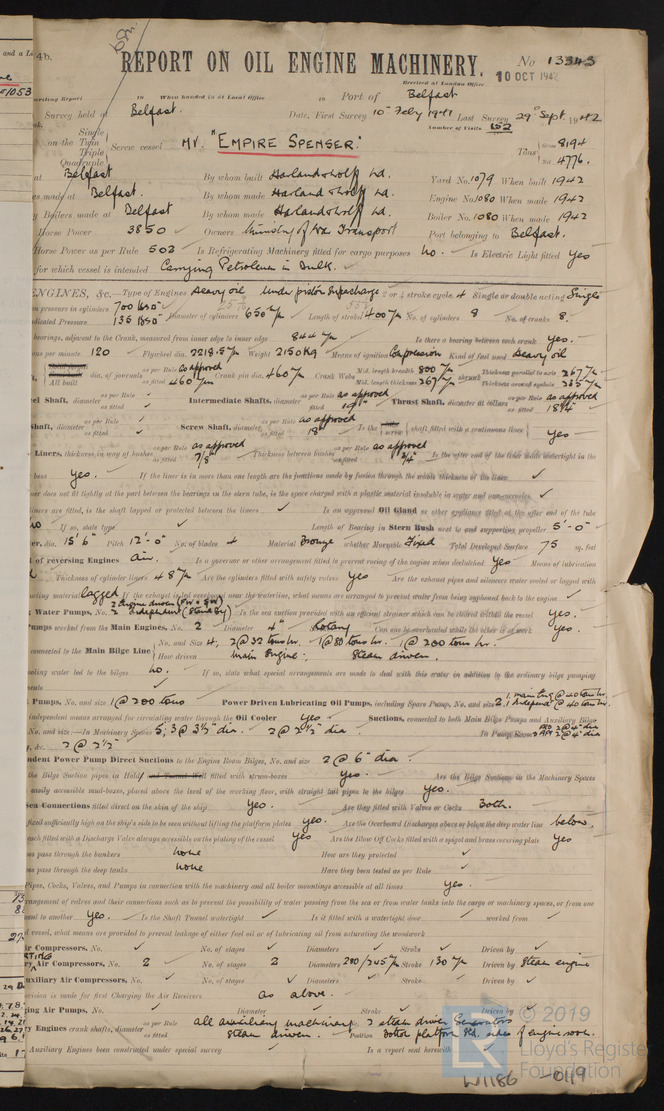 REPORT ON OIL ENGINE MACHINERY.
No 13343
Received at London Office
10 OCT 1942
When handed in at Local Office Port of Belfast
Survey held at Belfast. Date, First Survey 10th Feby 1941 Last Survey 29th Sept 1942
Number of Visits 152
Single
on the Twin Triple Quadruple Screw vessel MV. "EMPIRE SPENSER". Tons Gross 8194
Net 4776.
at Belfast By whom built Harland & Wolff Ld. Yard No. 1079 When built 1942
es made at Belfast. By whom made Harland & Wolff Ld. Engine No. 1080 When made 1942
Boilers made at Belfast By whom made Harland & Wolff Ld. Boiler No. 1080 When made 1942
Horse Power 3850 Owners Ministry of War Transport Port belonging to Belfast.
Horse Power as per Rule 502 Is Refrigerating Machinery fitted for cargo purposes No. Is Electric Light fitted Yes
for which vessel is intended Carrying Petroleum in Bulk.
ENGINES, &c. Type of Engines Heavy oil under piston Supercharge 2 or 4 stroke cycle 4 Single or double acting Single
pressure in cylinders 700 lbs Diameter of cylinders 650 m/m Length of stroke 1400 m/m No. of cylinders 8 No. of cranks 8.
Indicated Pressure 135 lbs
bearings, adjacent to the Crank, measured from inner edge to inner edge 844 m/m Is there a bearing between each crank Yes.
per minute 120 Flywheel dia. 2218.5 m/m Weight 2150 Kg Means of ignition Compression Kind of fuel used Heavy oil
dia. of journals as per Rule as approved as fitted 460 m/m Crank pin dia. 460 m/m Crank Webs Mid. length breadth 800 m/m Thickness parallel to axis 267 m/m
All built Mid. length thickness 267 m/m shrunk Thickness around eyehole
Shaft, diameter as per Rule as fitted Intermediate Shafts, diameter as per Rule as approved as fitted Thrust Shaft, diameter at collars as per Rule as approved as fitted 18¼"
Shaft, diameter as per Rule as fitted Screw Shaft, diameter as per Rule as approved as fitted 18" Is the shaft fitted with a continuous liner Yes
Liners, thickness in way of bushes as per Rule as approved as fitted 7/8" Thickness between bushes as per Rule as approved as fitted 3/4" Is the after end of the liner made watertight in the
boss Yes. If the liner is in more than one length are the junctions made by fusion through the whole thickness of the liner
does not fit tightly at the part between the bearings in the stern tube, is the space charged with a plastic material insoluble in water and non-corrosive
liners are fitted, is the shaft lapped or protected between the liners Is an approved Oil Gland or other appliance fitted at the after end of the tube
No If so, state type Length of Bearing in Stern Bush next to and supporting propeller 5'-0"
dia. 15'6" Pitch 12'-0" No. of blades 4 Material Bronze whether Moveable Fixed Total Developed Surface 75 sq. feet
of reversing Engines Air. Is a governor or other arrangement fitted to prevent racing of the engine when declutched Yes Means of lubrication
Thickness of cylinder liners 48 m/m Are the cylinders fitted with safety valves Yes Are the exhaust pipes and silencers water cooled or lagged with
material Lagged If the exhaust is led overboard near the waterline, what means are arranged to prevent water being syphoned back to the engine
Water Pumps, No. 2 Engine driven (FW & SW) 2 Independent (Stand By) Is the sea suction provided with an efficient strainer which can be cleared within the vessel Yes.
Pumps worked from the Main Engines, No. 2 Diameter 4" Rotary Can one be overhauled while the other is at work Yes.
connected to the Main Bilge Line No. and Size 4; 2 @ 32 tons hr. 1 @ 80 tons hr. 1 @ 200 tons hr.
How driven Main Engine; Steam driven.
cooling water led to the bilges No. If so, state what special arrangements are made to deal with this water in addition to the ordinary bilge pumping
Pumps, No. and size 1 @ 200 tons Power Driven Lubricating Oil Pumps, including Spare Pump, No. and size 2. 1 main Eng @ 40 tons hr. 1 Independt @ 40 tons hr.
independent means arranged for circulating water through the Oil Cooler Yes Suctions, connected to both Main Bilge Pumps and Auxiliary Bilge
No. and size:—In Machinery Spaces 5; 3 @ 3½" dia. 2 @ 2½" dia In Pump Room
&c. 2 @ 2½"
Power Pump Direct Suctions to the Engine Room Bilges, No. and size 2 @ 6" dia.
the Bilge Suction pipes in Holds fitted with strum-boxes Yes. Are the Bilge Suctions in the Machinery Spaces
easily accessible mud-boxes, placed above the level of the working floor, with straight tail pipes to the bilges Yes.
Sea Connections fitted direct on the skin of the ship Yes. Are they fitted with Valves or Cocks Both.
fixed sufficiently high on the ship's side to be seen without lifting the platform plates Yes. Are the Overboard Discharges above or below the deep water line below.
each fitted with a Discharge Valve always accessible on the plating of the vessel Yes Are the Blow Off Cocks fitted with a spigot and brass covering plate Yes
pass through the bunkers None How are they protected
pass through the deep tanks None Have they been tested as per Rule
Pipes, Cocks, Valves, and Pumps in connection with the machinery and all boiler mountings accessible at all times Yes.
arrangement of valves and their connections such as to prevent the possibility of water passing from the sea or from water tanks into the cargo or machinery spaces, or from one
to another Yes. Is the Shaft Tunnel watertight Is it fitted with a watertight door worked from
vessel, what means are provided to prevent leakage of either fuel oil or of lubricating oil from saturating the woodwork
Air Compressors, No. No. of stages Diameters Stroke Driven by
Air Compressors, No. 2 No. of stages 2 Diameters Stroke 130 m/m Driven by Steam engine
Auxiliary Air Compressors, No. No. of stages Diameters Stroke Driven by
provision is made for first Charging the Air Receivers as above.
Air Pumps, No. Diameter Stroke Driven by
Engines crank shafts, diameter as per Rule as fitted all auxiliary machinery steam driven. 2 steam driven Generators Position bottom platform Stbd. sides of engine room.
Auxiliary Engines been constructed under special survey Is a report sent herewith
© 2019
Lloyd's Register
Foundation
W1186 -0119